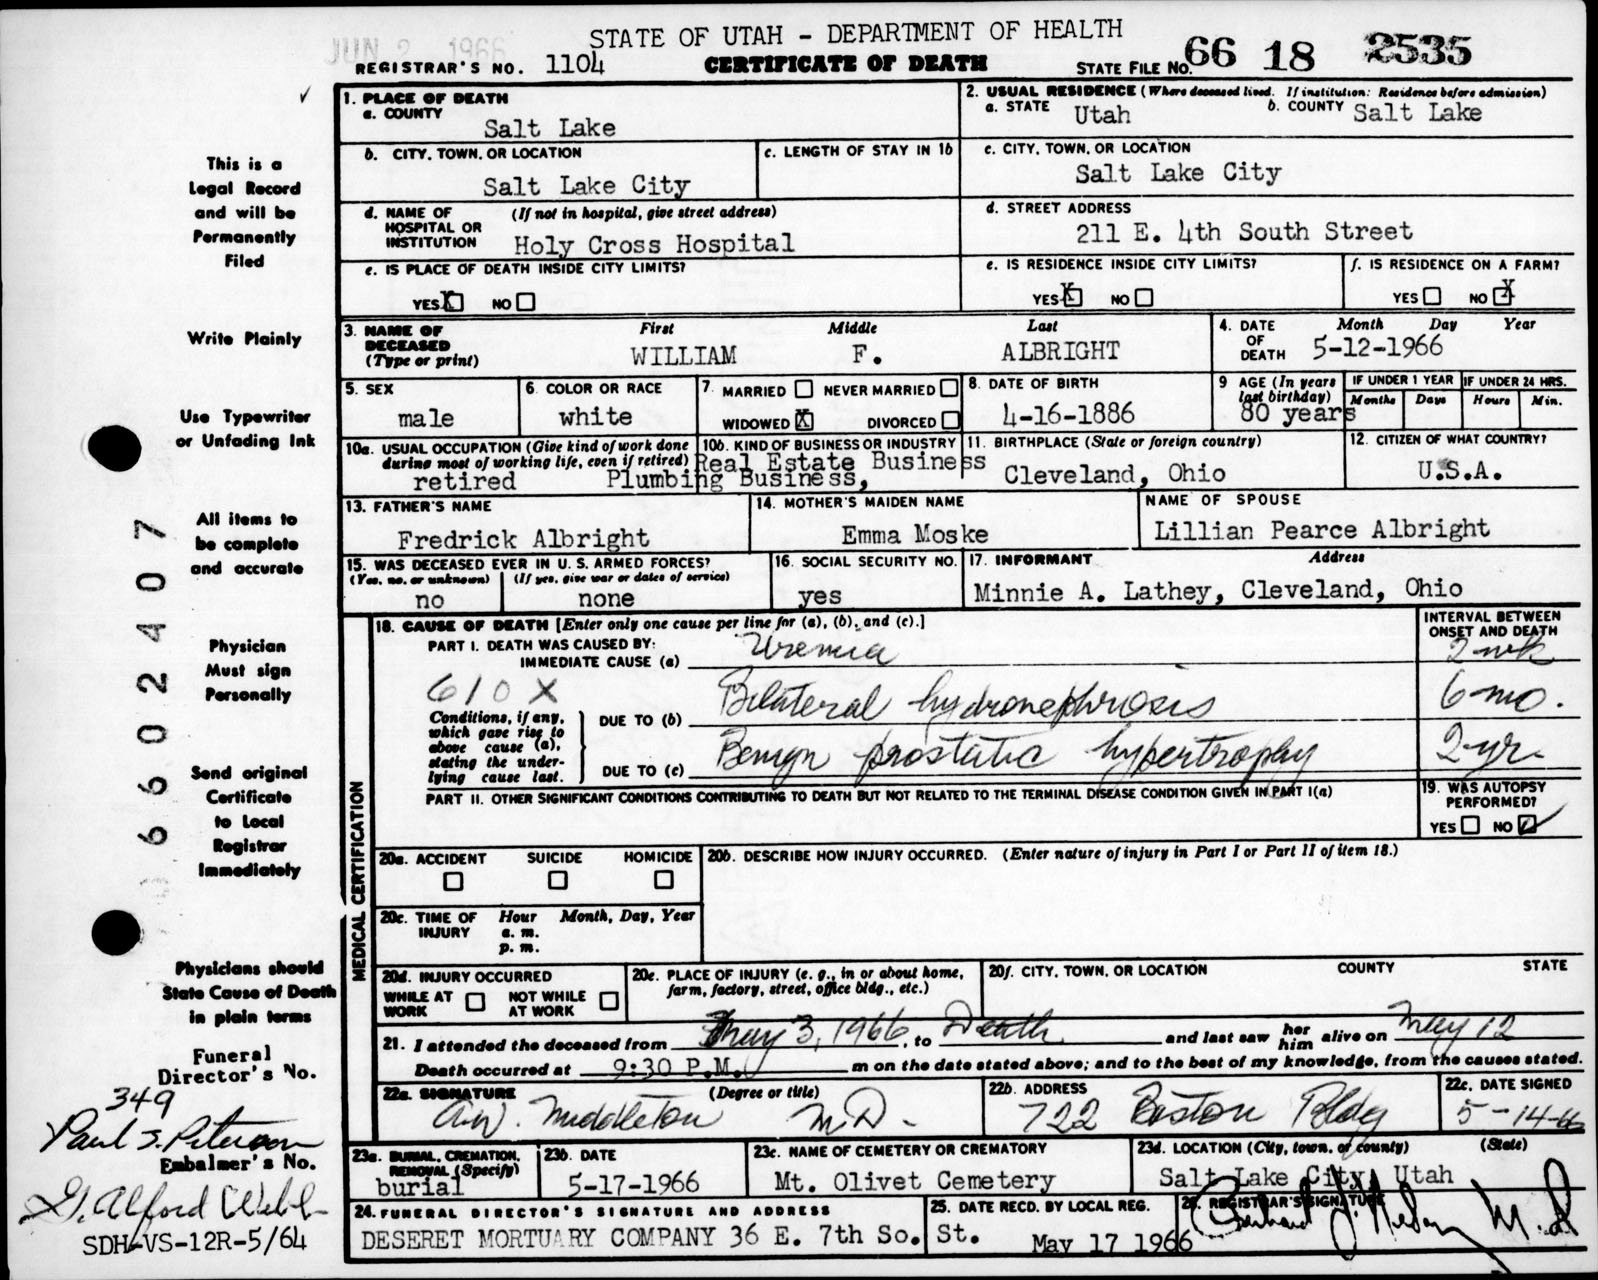 JUN 2 1966
STATE OF UTAH - DEPARTMENT OF HEALTH
REGISTRAR'S NO. 1104 CERTIFICATE OF DEATH STATE FILE NO. 66 18 2535
1. PLACE OF DEATH
a. COUNTY
Salt Lake
2. USUAL RESIDENCE (Where deceased lived. If institution: Residence before admission)
a. STATE Utah b. COUNTY Salt Lake
b. CITY, TOWN, OR LOCATION
Salt Lake City
c. LENGTH OF STAY IN 1b
c. CITY, TOWN, OR LOCATION
Salt Lake City
d. NAME OF (If not in hospital, give street address)
HOSPITAL OR
INSTITUTION Holy Cross Hospital
d. STREET ADDRESS
211 E. 4th South Street
e. IS PLACE OF DEATH INSIDE CITY LIMITS?
YES X NO
e. IS RESIDENCE INSIDE CITY LIMITS?
YES X NO
f. IS RESIDENCE ON A FARM?
YES NO X
3. NAME OF DECEASED (Type or print)
First Middle Last
WILLIAM F. ALBRIGHT
4. DATE OF DEATH
Month Day Year
5-12-1966
5. SEX
male
6. COLOR OR RACE
white
7. MARRIED NEVER MARRIED
WIDOWED X DIVORCED
8. DATE OF BIRTH
4-16-1886
9 AGE (In years last birthday)
80 years
IF UNDER 1 YEAR
Months Days
IF UNDER 24 HRS.
Hours Min.
10a. USUAL OCCUPATION (Give kind of work done
during most of working life, even if retired)
retired Plumbing Business,
10b. KIND OF BUSINESS OR INDUSTRY
Real Estate Business
11. BIRTHPLACE (State or foreign country)
Cleveland, Ohio
12. CITIZEN OF WHAT COUNTRY?
U.S.A.
13. FATHER'S NAME
Fredrick Albright
14. MOTHER'S MAIDEN NAME
Emma Moske
NAME OF SPOUSE
Lillian Pearce Albright
15. WAS DECEASED EVER IN U. S. ARMED FORCES?
(Yes, no, or unknown) (If yes, give war or dates of service)
no none
16. SOCIAL SECURITY NO.
yes
17. INFORMANT Address
Minnie A. Lathey, Cleveland, Ohio
MEDICAL CERTIFICATION
18. CAUSE OF DEATH [Enter only one cause per line for (a), (b), and (c).]
INTERVAL BETWEEN
ONSET AND DEATH
PART I. DEATH WAS CAUSED BY:
IMMEDIATE CAUSE (a) Uremia 2 wk
610 X
Conditions, if any,
which gave rise to
above cause (a),
stating the under-
lying cause last.
DUE TO (b) Bilateral hydronephrosis 6 mo.
DUE TO (c) Benign prostatic hypertrophy 2 yr.
PART II. OTHER SIGNIFICANT CONDITIONS CONTRIBUTING TO DEATH BUT NOT RELATED TO THE TERMINAL DISEASE CONDITION GIVEN IN PART I(a)
19. WAS AUTOPSY
PERFORMED?
YES NO
20a. ACCIDENT SUICIDE HOMICIDE
20b. DESCRIBE HOW INJURY OCCURRED. (Enter nature of injury in Part I or Part II of item 18.)
20c. TIME OF INJURY
Hour Month, Day, Year
a. m.
p. m.
20d. INJURY OCCURRED
WHILE AT WORK NOT WHILE AT WORK
20e. PLACE OF INJURY (e. g., in or about home,
farm, factory, street, office bldg., etc.)
20f. CITY, TOWN, OR LOCATION COUNTY STATE
21. I attended the deceased from May 3, 1966, to Death and last saw her him alive on May 12
Death occurred at 9:30 P.M. m on the date stated above; and to the best of my knowledge, from the causes stated.
22a. SIGNATURE (Degree or title)
A.W. Middleton M.D.
22b. ADDRESS
722 Boston Bldg
22c. DATE SIGNED
5-14-66
23a. BURIAL, CREMATION,
REMOVAL (Specify)
burial
23b. DATE
5-17-1966
23c. NAME OF CEMETERY OR CREMATORY
Mt. Olivet Cemetery
23d. LOCATION (City, town, or county) (State)
Salt Lake City, Utah
24. FUNERAL DIRECTOR'S SIGNATURE AND ADDRESS
DESERET MORTUARY COMPANY 36 E. 7th So. St.
25. DATE RECD. BY LOCAL REG.
May 17 1966
26. REGISTRAR'S SIGNATURE
This is a
Legal Record
and will be
Permanently
Filed
Write Plainly
Use Typewriter
or Unfading Ink
All items to
be complete
and accurate
Physician
Must sign
Personally
Send original
Certificate
to Local
Registrar
Immediately
Physicians should
State Cause of Death
in plain terms
Funeral
Director's No.
349
Paul S. Peterson
Embalmer's No.
G. Alford Webb
SDH-VS-12R-5/64
6602407